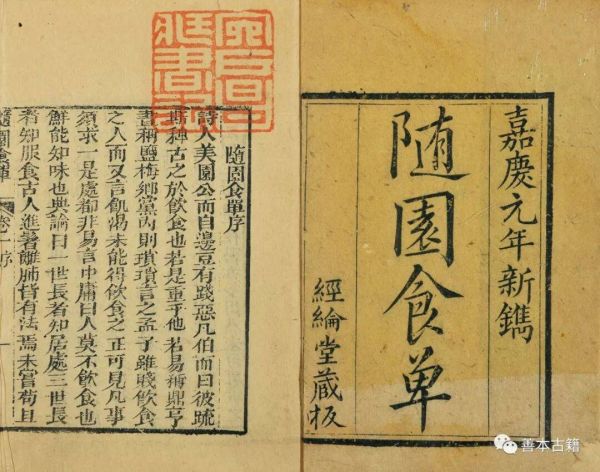 嘉慶元年新鐫
随園食单
經綸堂藏板
隨園食單序
詩人美園公而自邊豆有踐惡凡伯而曰彼疏
斯稗古之於飲食也若是重乎他若易稱鼎亨
書稱鹽梅鄉黨內則瑣瑣言之孟子雖賤飲食
之人而又言飢渴未能得飲食之正可見凡事
須求一是處都非易言中庸曰人莫不飲食也
鮮能知味也典論曰一世長者知居處三世長
者知服食古人進鬐離肺皆有法焉未嘗苟且
隨園食單 卷一 序
善本古籍